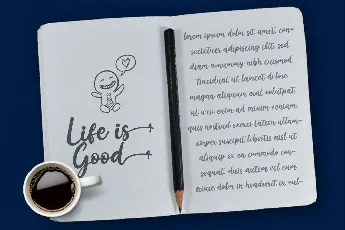 Life is
Good
lorem ipsum dolor sit amet, con-
sectetuer adipiscing elit, sed
diam nonummy nibh euismod
tincidunt ut laoreet dolore
magna aliquam erat volutpat.
ut wisi enim ad minim veniam,
quis nostrud exerci tation ullam-
corper suscipit lobortis nisl ut
aliquip ex ea commodo con-
sequat. duis autem vel eum
iriure dolor in hendrerit in vul-